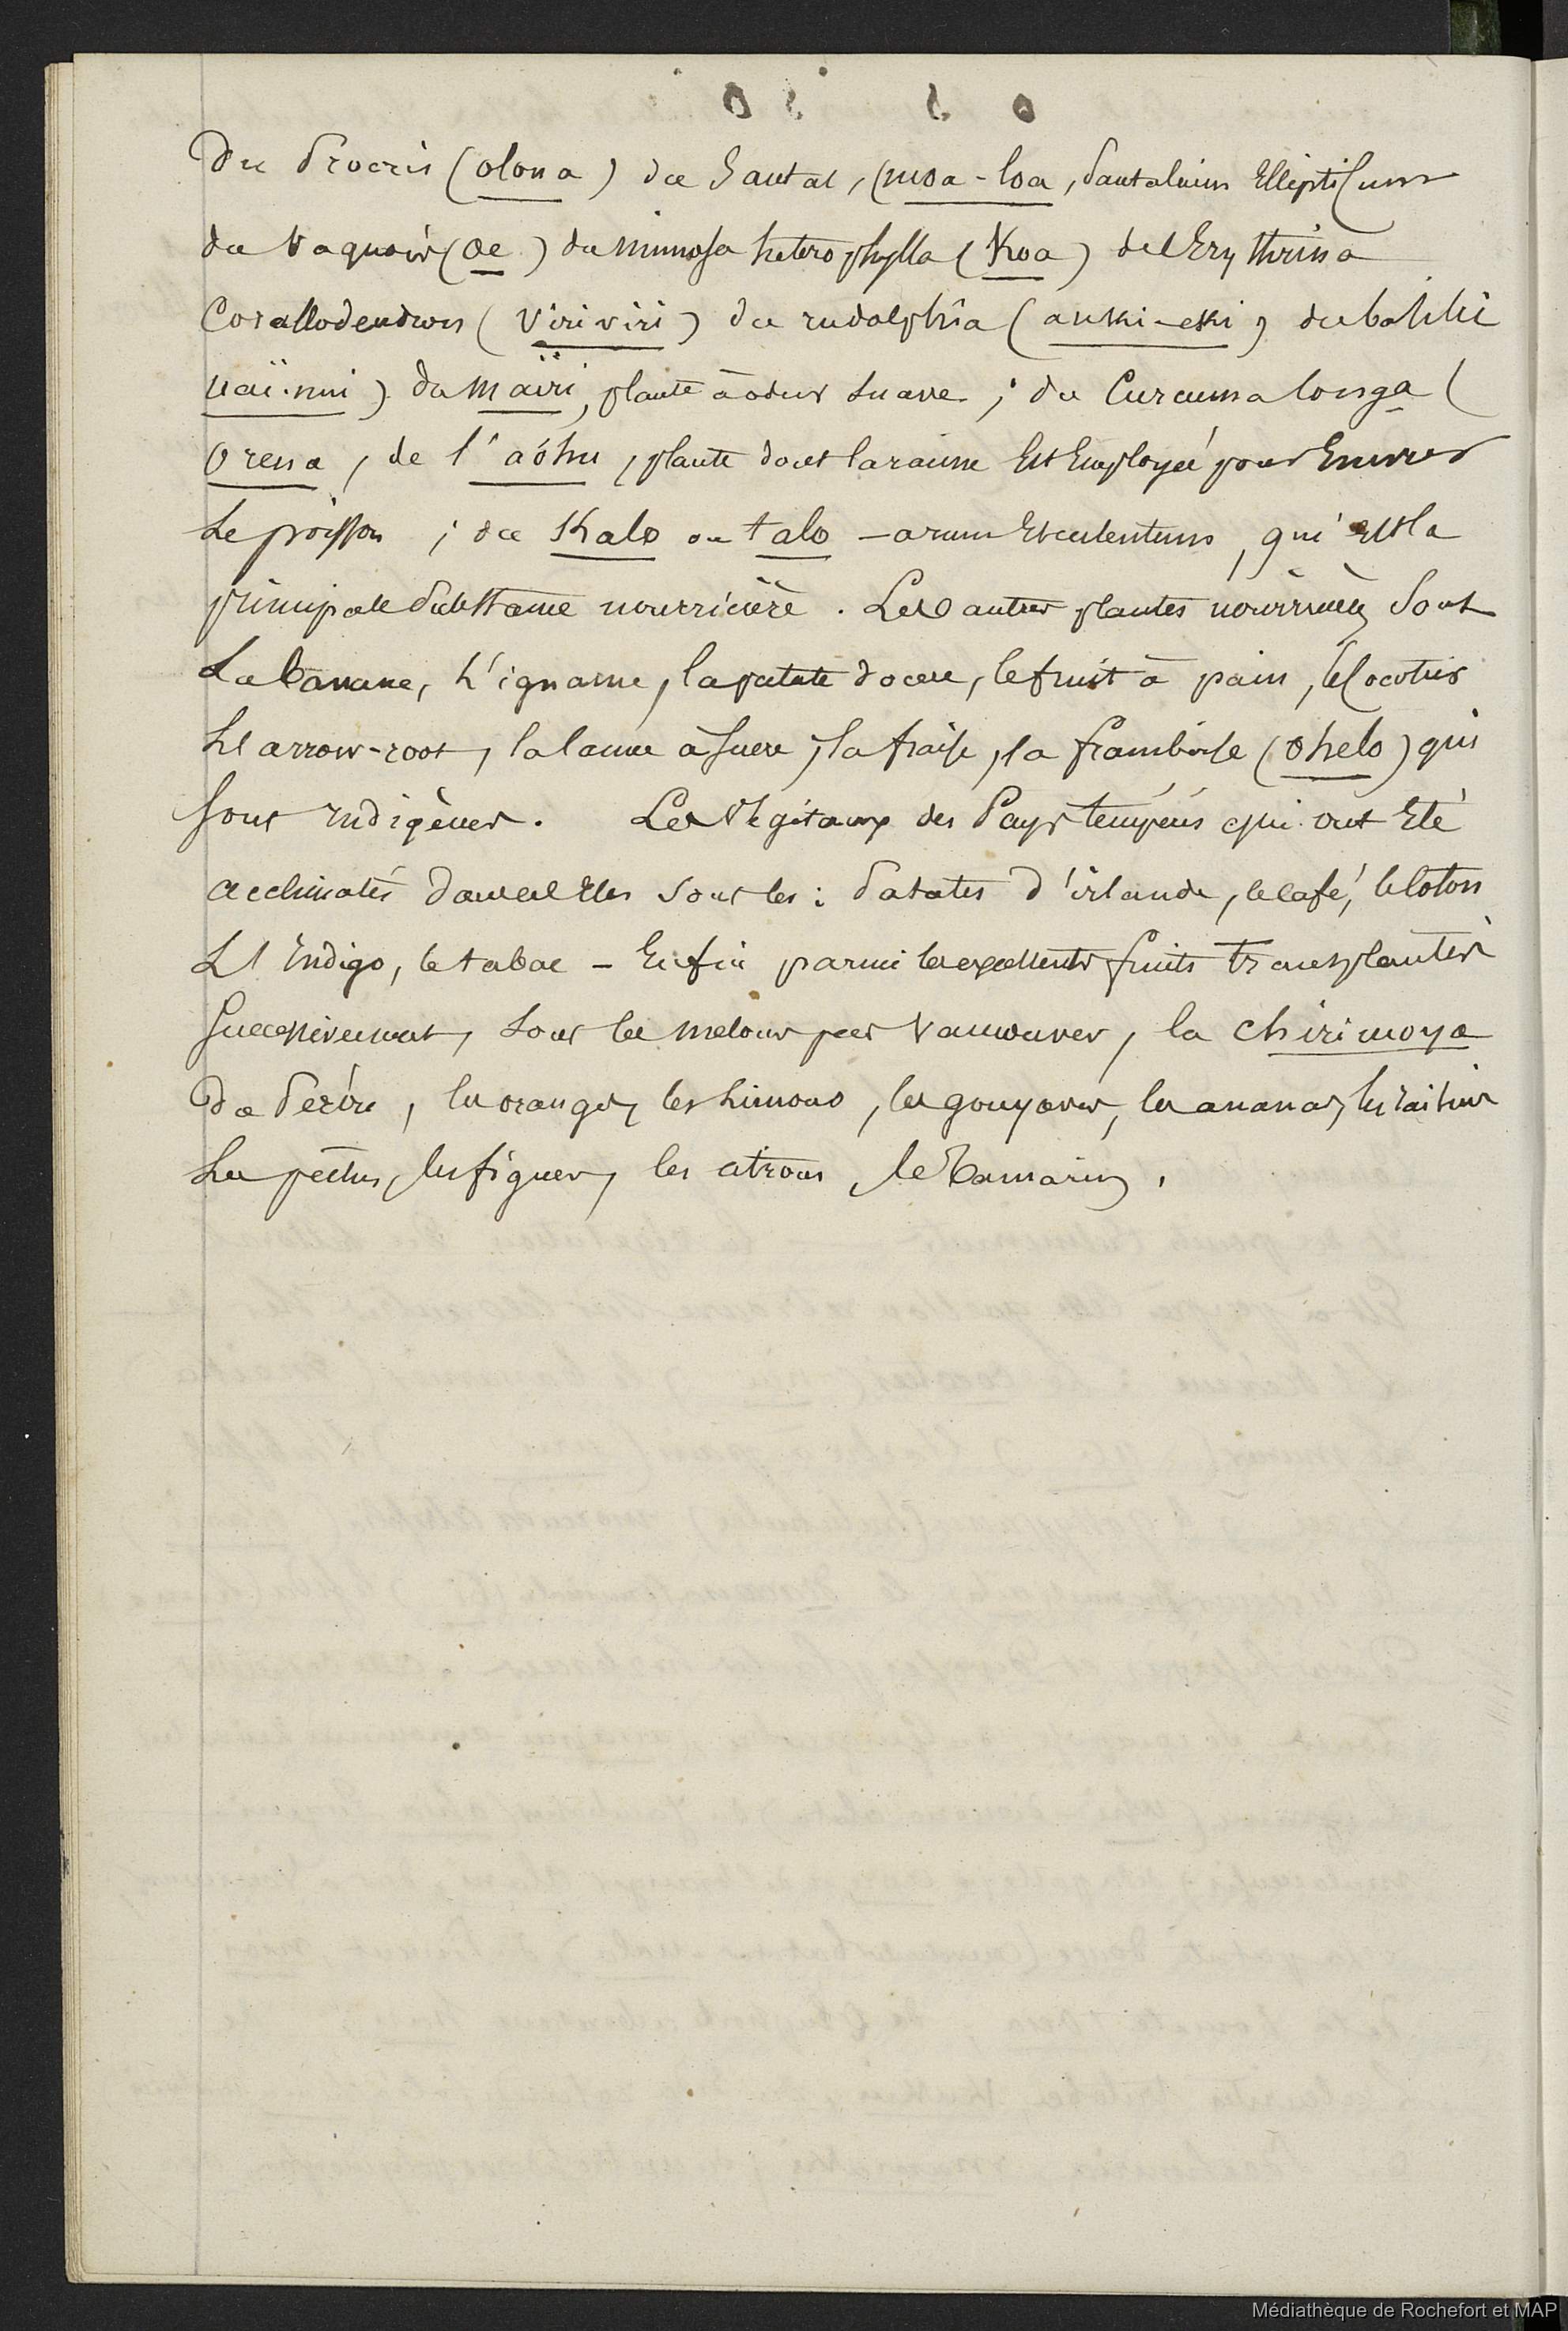 Du Procris (olona) du Santal, (moa-loa, Santalum Ellipticum
du Vaquois (oe) du mimosa heterophylla (Koa) de l'Erythrina
Corallodendron (Viriviri) du rudolphia (auski-eski) du
uaï-nui) du maïri, plante à odeur suave ; du Curcuma longa (
orena, de l'aóhu, plante dont la racine Est Employée pour Enivrer
Le poisson ; du Kalo ou talo - arum Esculentum, qui est la
principale Substance nourricière. Les autres plantes nourricières Sont
La banane, L'igname, la patate douce, le fruit à pain, le Cocotier
L'arrow-root, la Canne à Sucre, la fraise, la framboise (ohelo) qui
Sont indigènes. Les Végétaux des Pays tempérés qui ont Eté
acclimatés dans ces Iles sont les : Patates d'irlande, le Café, le Coton
L'Indigo, le tabac - Enfin parmi les excellents fruits transplantés
Successivement, Sont les melons par Vancouver, la chirimoya
Du Pérou, les oranges, les Limons, les gouyaves, les ananas, les raisins
Les pêches, les figues, les citrons, le Tamarin.
Médiathèque de Rochefort et MAP